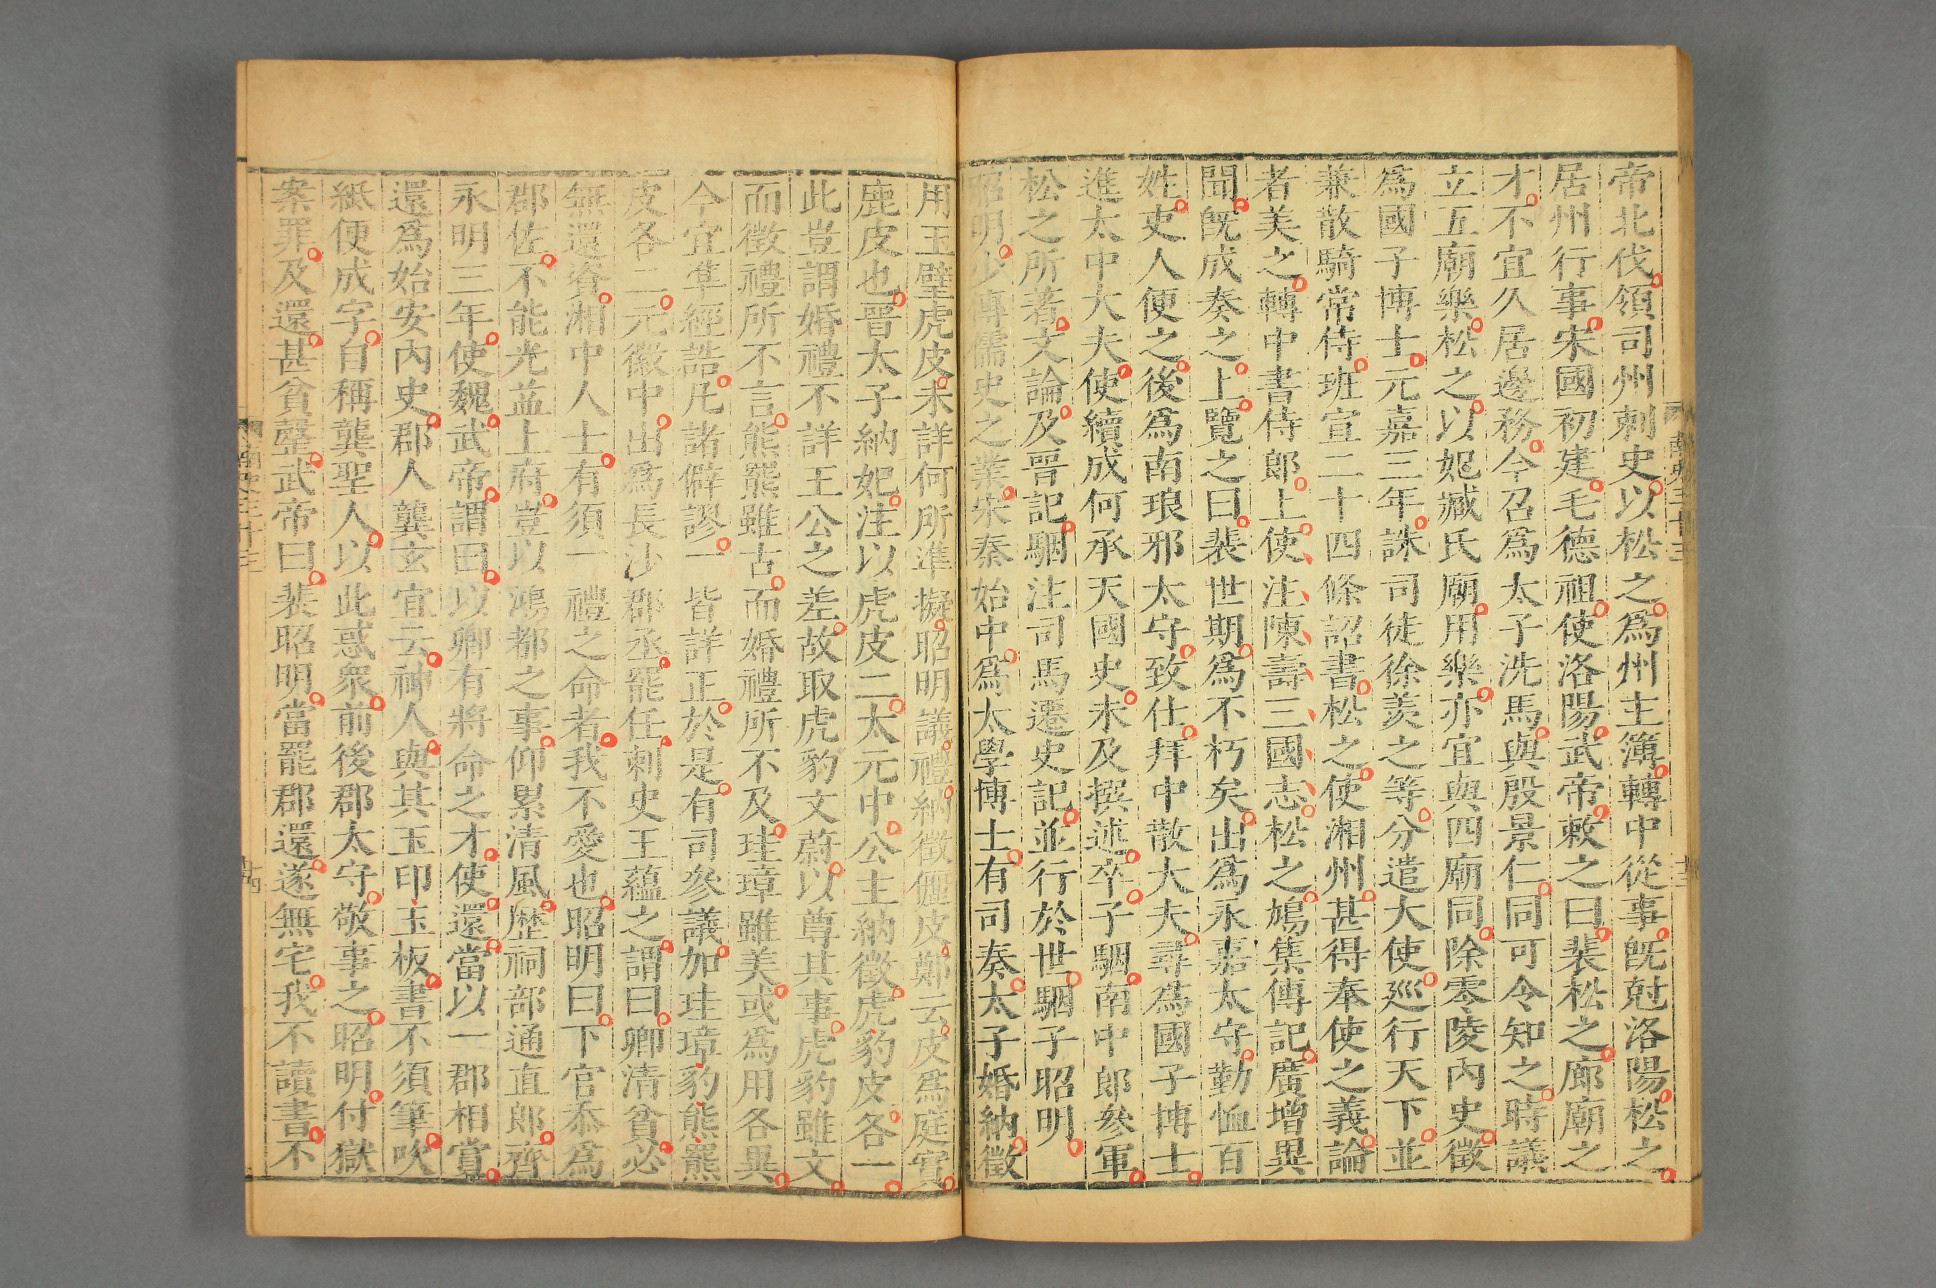 帝北伐領司州刺史以松之爲州主簿轉中從事旣尅洛陽松之
居州行事宋國初建毛德祖使洛陽武帝敕之曰裴松之廊廟之
才不宜久居邊務今召爲太子洗馬與殷景仁同可令知之時議
立五廟樂松之以妃臧氏廟用樂亦宜與四廟同除零陵內史徵
爲國子博士元嘉三年誅司徒徐羨之等分遣大使巡行天下並
兼散騎常侍班宣二十四條詔書松之使湘州甚得奉使之義論
者美之轉中書侍郎上使注陳壽三國志松之鳩集傳記廣增異
聞旣成奏之上覽之曰裴世期爲不朽矣出爲永嘉太守勤恤百
姓吏人便之後爲南琅邪太守致仕拜中散大夫尋爲國子博士
進太中大夫使續成何承天國史未及撰述卒子駰南中郎參軍
松之所著文論及晉記駰注司馬遷史記並行於世駰子昭明
昭明少專儒史之業宋泰始中爲太學博士有司奏太子婚納徵
用玉璧虎皮未詳何所準擬昭明議禮納徵儷皮鄭云皮爲庭實
鹿皮也晉太子納妃注以虎皮二太元中公主納徵虎豹皮各一
此豈謂婚禮不詳王公之差故取虎豹文蔚以尊其事虎豹雖文
而徵禮所不言熊羆雖古而婚禮所不及珪璋雖美或爲用各異
今宜準經誥凡諸僻謬一皆詳正於是有司參議加珪璋豹熊羆
皮各二元徽中出爲長沙郡丞罷任刺史王蘊之謂曰卿清貧必
無還資湘中人士有須一禮之命者我不愛也昭明曰下官忝爲
郡佐不能光益上府豈以鴻都之事仰累清風歷祠部通直郎齊
永明三年使魏武帝謂曰以卿有將命之才使還當以一郡相賞
還爲始安內史郡人龔玄宜云神人與其玉印玉板書不須筆吹
紙便成字自稱龔聖人以此惑衆前後郡太守敬事之昭明付獄
案罪及還甚貧罄武帝曰裴昭明當罷郡還遂無宅我不讀書不